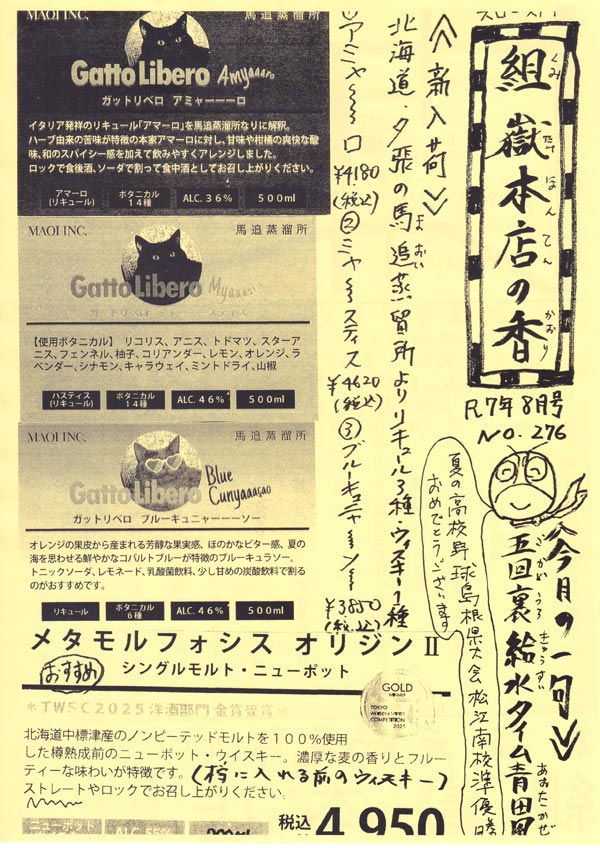 スロース入門
組嶽本店の香
くみ たけ ほん てん かおり
R7年8月号
NO.276
≪今月の一句≫
五回裏 給水タイム 青田風
ごかいうら きゅうすい あおたかぜ
夏の高校野球島根県大会松江南校準優勝
おめでとうございます
≪新入荷≫
北海道・夕張の馬追蒸留所よりリキュール3種・ウィスキー1種
まおい
①アミャ〜〜ロ ¥4180(税込)
②ミャ〜〜スティス ¥4620(税込)
③ブルーキュニャ〜ン〜 ¥3850(税込)
MAOI INC. 馬追蒸溜所
Gatto Libero Amyaaaro
ガットリベロ アミャーーーロ
イタリア発祥のリキュール「アマーロ」を馬追蒸溜所なりに解釈。
ハーブ由来の苦味が特徴の本家アマーロに対し、甘味や柑橘の爽快な酸
味、和のスパイシー感を加えて飲みやすくアレンジしました。
ロックで食後酒、ソーダで割って食中酒としてお召し上がりください。
アマーロ(リキュール) ボタニカル14種 ALC.36% 500ml
MAOI INC. 馬追蒸溜所
Gatto Libero
ガットリベロ ミャーーースティス
【使用ボタニカル】 リコリス、アニス、トドマツ、スターア
ニス、フェンネル、柚子、コリアンダー、レモン、オレンジ、ラ
ベンダー、シナモン、キャラウェイ、ミントドライ、山椒
パスティス(リキュール) ボタニカル14種 ALC.46% 500ml
MAOI INC. 馬追蒸溜所
Gatto Libero Blue Cunyaaaçao
ガットリベロ ブルーキュニャーーーソー
オレンジの果皮から産まれる芳醇な果実感、ほのかなビター感、夏の
海を思わせる鮮やかなコバルトブルーが特徴のブルーキュラソー。
トニックソーダ、レモネード、乳酸菌飲料、少し甘めの炭酸飲料で割る
のがおすすめです。
リキュール ボタニカル6種 ALC.46% 500ml
メタモルフォシス オリジンⅡ
おすすめ
シングルモルト・ニューポット
GOLD
WINNER
TOKYO
WHISKY & SPIRITS
COMPETITION
2025
*TWSC2025洋酒部門 金賞受賞*
北海道中標津産のノンピーテッドモルトを100%使用
した樽熟成前のニューポット・ウイスキー。濃厚な麦の香りとフルー
ティーな味わいが特徴です。(樽に入れる前のウィスキー)
ストレートやロックでお召し上がりください。
ニューポット ALC.55%
税込 4,950